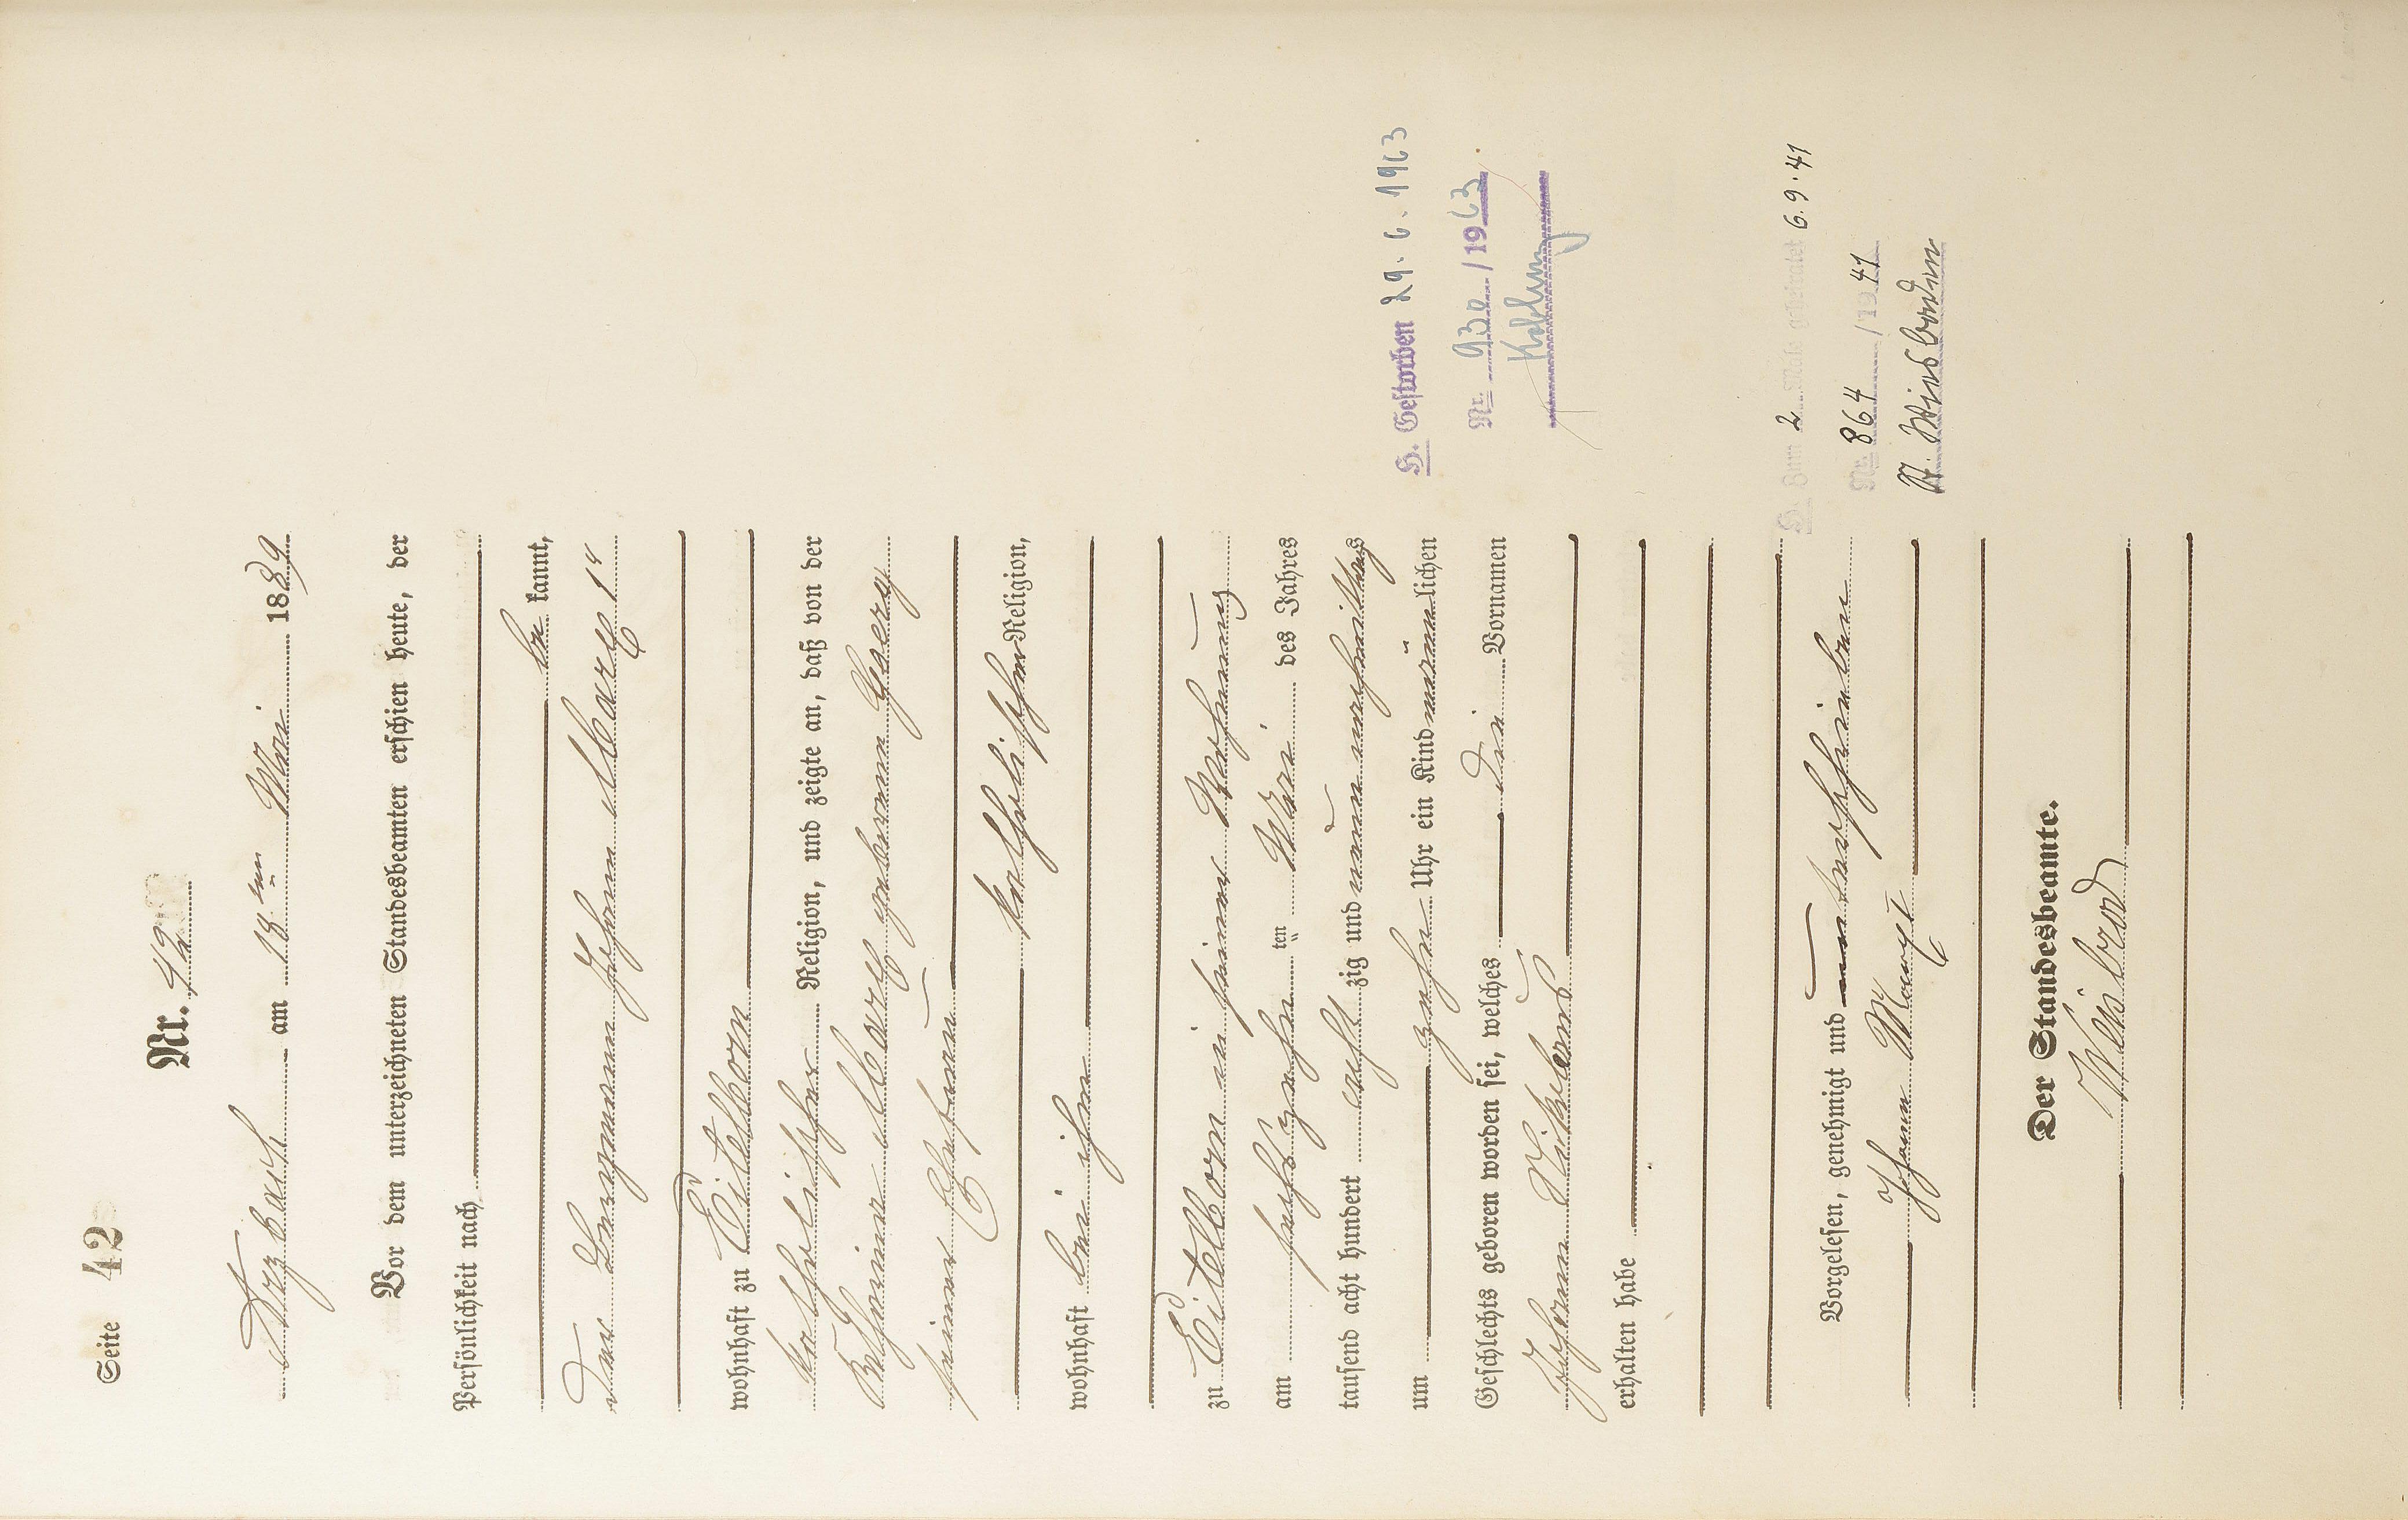 Seite 42
Nr. 42
Arzbach am 18ten Mai 1889
Vor dem unterzeichneten Standesbeamten erschien heute, der
Persönlichkeit nach
be kannt,
der Bergmann Johann Marx 1r
wohnhaft zu Eitelborn
katholischer Religion, und zeigte an, daß von der
Marx geborenen
seiner Ehefrau
katholischer Religion,
wohnhaft bei ihm
zu Eitelborn in seiner Wohnung
am sechszehn ten Mai des Jahres
tausend acht hundert acht zig und neun nachmittags
um zehn Uhr ein Kind männlichen
Geschlechts geboren worden sei, welches die Vornamen
Johann Nikolaus
erhalten habe
Vorgelesen, genehmigt und unterschrieben
Johann Marx
Der Standesbeamte.
H. Gestorben 29.6.1963
Nr. 930/1963
Koblenz
H. Zum 2 Male geheiratet 6.9.41
Nr. 864/1941
St. Wiesbaden